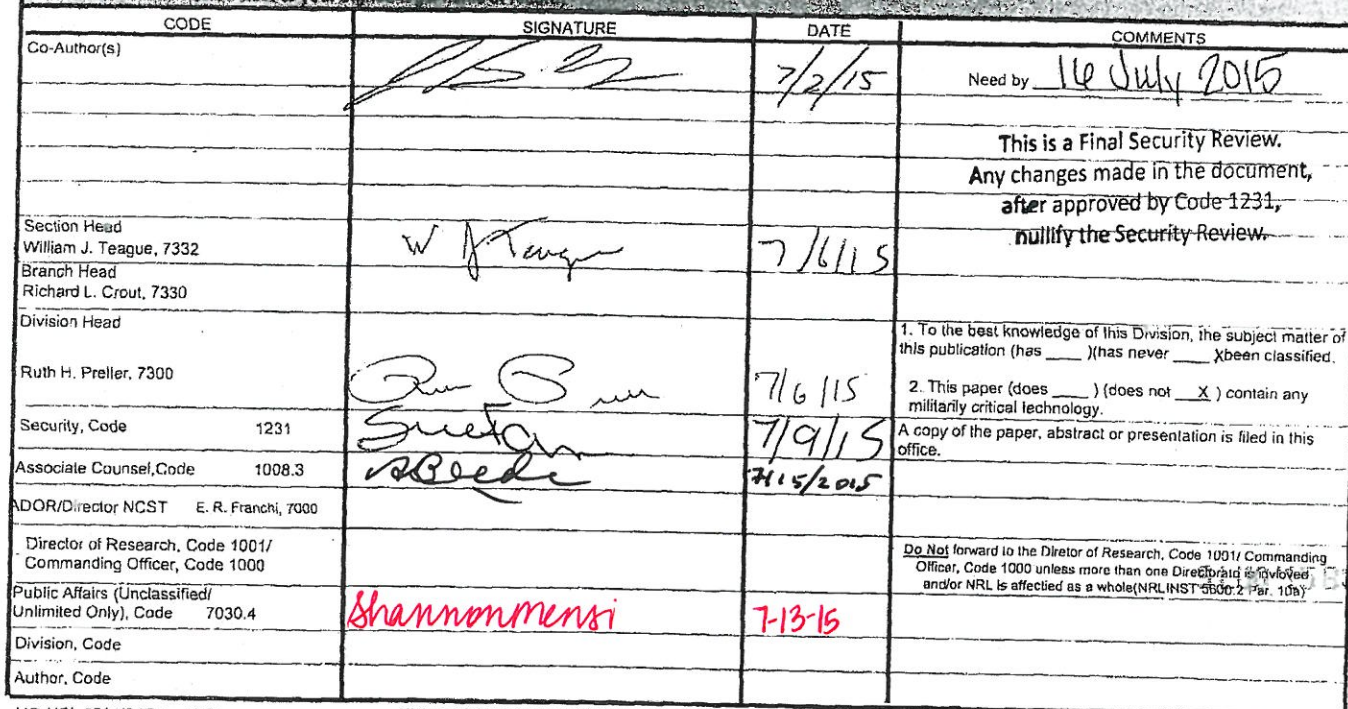 CODE SIGNATURE DATE COMMENTS
Co-Author(s) 7/2/15 Need by 16 July 2015
This is a Final Security Review.
Any changes made in the document,
after approved by Code 1231,
nullify the Security Review.
Section Head
William J. Teague, 7332 W J Teague 7/6/15
Branch Head
Richard L. Crout, 7330
Division Head
1. To the best knowledge of this Division, the subject matter of
this publication (has ____ )(has never ____ )(been classified.
Ruth H. Preller, 7300 7/6/15
2. This paper (does ____ ) (does not X ) contain any
militarily critical technology.
Security, Code 1231 7/9/15
A copy of the paper, abstract or presentation is filed in this
office.
Associate Counsel,Code 1008.3 7/15/2015
ADOR/Director NCST E. R. Franchi, 7000
Director of Research, Code 1001/
Commanding Officer, Code 1000
Do Not forward to the Diretor of Research, Code 1001/ Commanding
Officer, Code 1000 unless more than one Directorate is invloved
and/or NRL is affectied as a whole(NRLINST 5600.2 Par. 10a)
Public Affairs (Unclassified/
Unlimited Only), Code 7030.4 Shannon Mensi 7-13-15
Division, Code
Author, Code